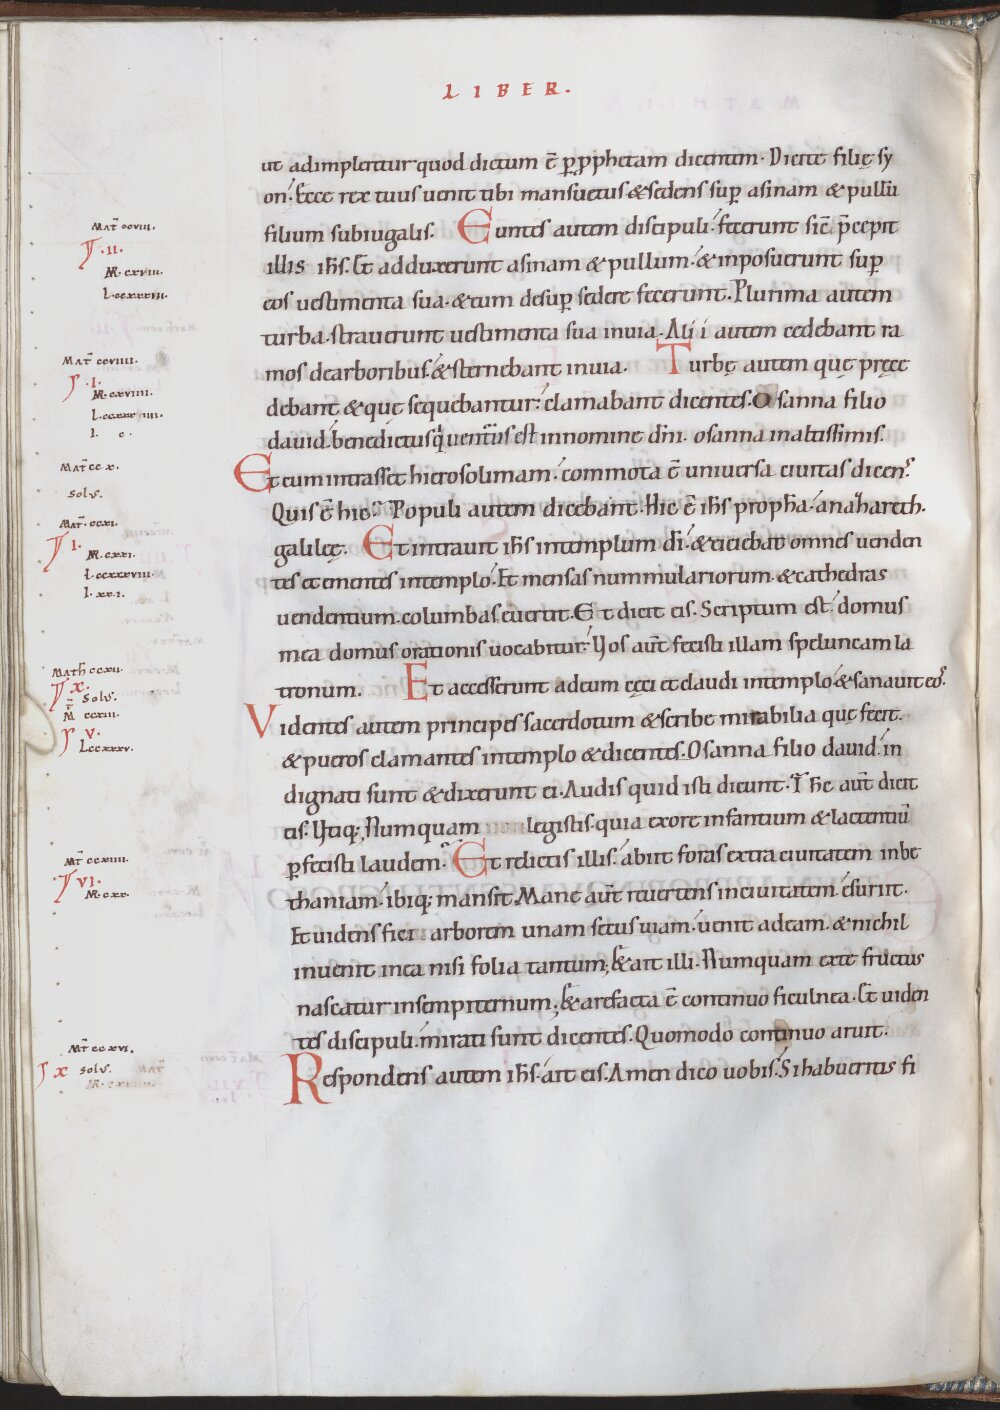 LIBER.
ut adimpleretur quod dictum ē ꝑ ꝓphetam dicentem. Dicite filię sy
on. Ecce rex tuus uenit tibi mansuetus & sedens suꝑ asinam & pullū
filium subiugalis. Euntes autem discipuli fecerunt sic̄ p̄cepit
illis ih̄s. Et adduxerunt asinam & pullum. & inposuerunt suꝑ
eos uestimenta sua. & eum desuꝑ sedere fecerunt. Plurima autem
turba. strauerunt uestimenta sua inuia. Alii autem cedebant ra
mos dearboribus & sternebant inuia. Turbę autem quę pręce
debant & quę sequebantur: clamabant dicentes. Osanna filio
dauid. benedictus q' uenturus est innomine dn̄i. osanna inaltissimis.
Et cum intrasset hierosolimam. commota ē uniuersa ciuitas dicens.
Quis ē hic. Populi autem dicebant. Hic ē ih̄s propha. anazareth.
galileę. Et intrauit ih̄s intemplum di. & eiciebat omnes uenden
tes et ementes intemplo. Et mensas nummulariorum. & cathedras
uendentium. columbas euertit. Et dicit eis. Scriptum est. domus
mea domus orationis uocabitur. Vos aut̄ fecistis illam speluncam la
tronum. Et accesserunt adeum cęci et claudi intemplo & sanauit eos.
Videntes autem principes sacerdotum & scribe mirabilia quę fecit.
& pueros clamantes intemplo & dicentes. Osanna filio dauid. in
dignati sunt & dixerunt ei. Audis quid isti dicunt. Ih̄c aut̄ dicit
eis. Vtiq; Numquam legistis. quia exore infantium & lactentiū
ꝑfecisti laudem. Et relictis illis. abiit foras extra ciuitatem inbe
thaniam. ibiq; mansit. Mane aut̄ reuertens inciuitatem. esuriit.
Et uidens fici arborem unam secus uiam. uenit adeam. & nichil
inuenit inea nisi folia tantum; & ait illi. Numquam exte fructus
nascatur insempiternum; & arefacta ē continuo ficulnea. Et uiden
tes discipuli. mirati sunt dicentes. Quomodo continuo aruit.
Respondens autem ih̄s. ait eis. Amen dico uobis. Si habueritis fi
Mat̄ ccviii.
.ii.
M. cxviii.
L. ccxxxiii.
Mat̄ ccviiii.
.i.
M. cxviiii.
l. c.
Mat̄ cc x.
solus.
Mat̄. ccxi.
i.
M. cxxi.
l. ccxxxviii.
l. xx.i.
Math ccxii.
x.
Solus.
M̄ ccxiii.
v.
L. ccxxxv.
Mt̄ ccxiiii.
vi.
M. cxx.
Mt̄ cc xvi.
x solus.